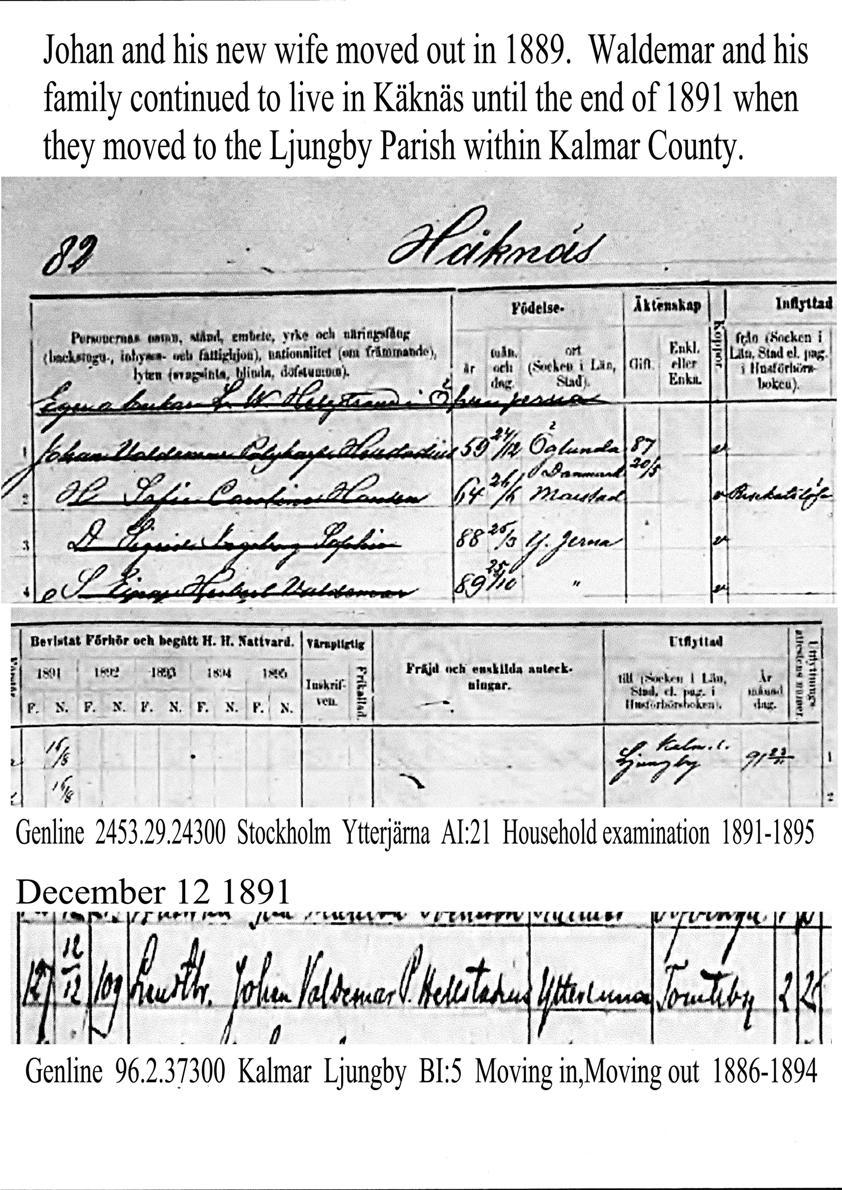 Johan and his new wife moved out in 1889. Waldemar and his
family continued to live in Käknäs until the end of 1891 when
they moved to the Ljungby Parish within Kalmar County.
82 Håknäs
Personernas namn, stånd, embete, yrke och näringsfång
(backstugu-, inhyses- och fattighjon), nationalitet (om främmande),
lyten (svagsinta, blinda, döfstumma).
Födelse-
år
mån. och dag.
ort (Socken i Län, Stad).
Äktenskap
Gift.
Enkl. eller Enka.
Koppor
Inflyttad
från (Socken i Län, Stad el. pag. i Husförhörsboken).
1 Johan Valdemar Hellstadius 59 24/12 Öglunda 87
20/5
Danmark
2 H. Sofia Carolina Hansen 64 26/ Marstad
3 D. Sigrid Ingeborg Sophia 88 25/3 Y. Jerna
4 S. Einar Herbert Valdemar 89 25/10 "
Bevistat Förhör och begått H. H. Nattvard.
1891 1892 1893 1894 1895
F. N. F. N. F. N. F. N. F. N.
Värnpligtig
Inskrifven.
Frikallad.
Fräjd och enskilda anteckningar.
Utflyttad
till (Socken i Län, Stad, el. pag. i Husförhörsboken).
År månad dag.
Utflyttningsattestens numer.
16/8 Kalm. l. Ljungby 91 1
16/8 2
Genline 2453.29.24300 Stockholm Ytterjärna AI:21 Household examination 1891-1895
December 12 1891
127 12/12 109 Johan Valdemar P. Hellstadius Tomteby 2
Genline 96.2.37300 Kalmar Ljungby BI:5 Moving in,Moving out 1886-1894